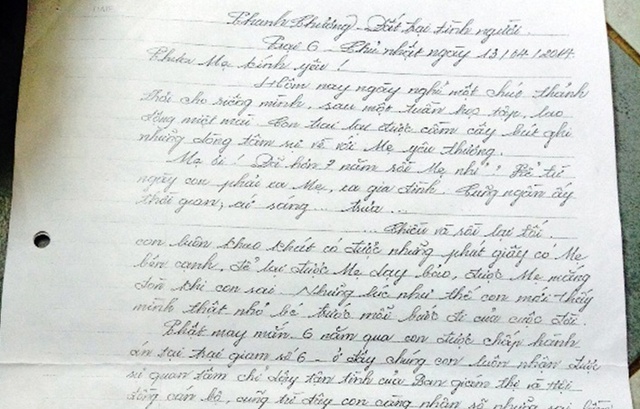 Thanh Chương - Đất bại tình người.
Trại 6 - Chủ nhật ngày 13/04/2014
Thưa Mẹ kính yêu!
Hôm nay ngày nghỉ một chút thảnh
thơi cho riêng mình, sau một tuần học tập, lao
động miệt mài. Con trai lại được cầm cây bút ghi
những dòng tâm sự về với Mẹ yêu thương.
Mẹ ơi! Đã hơn 7 năm rồi Mẹ nhỉ! Kể từ
ngày con phải xa Mẹ, xa gia đình. Cũng ngần ấy
thời gian, cứ sáng... trưa...
... Chiều và rồi lại tối.
con luôn khao khát có được những phút giây có Mẹ
bên cạnh, để lại được Mẹ dạy bảo, được Mẹ mắng
đòn khi con sai. Những lúc như thế con mới thấy
mình thật nhỏ bé trước mỗi bước đi của cuộc đời.
Thật may mắn 6 năm qua con được chấp hành
án tại trại giam số 6 - ở đây chúng con luôn nhận được
sự quan tâm chỉ dạy tận tình của Ban giám thị và đội
cán bộ, cũng từ đây con